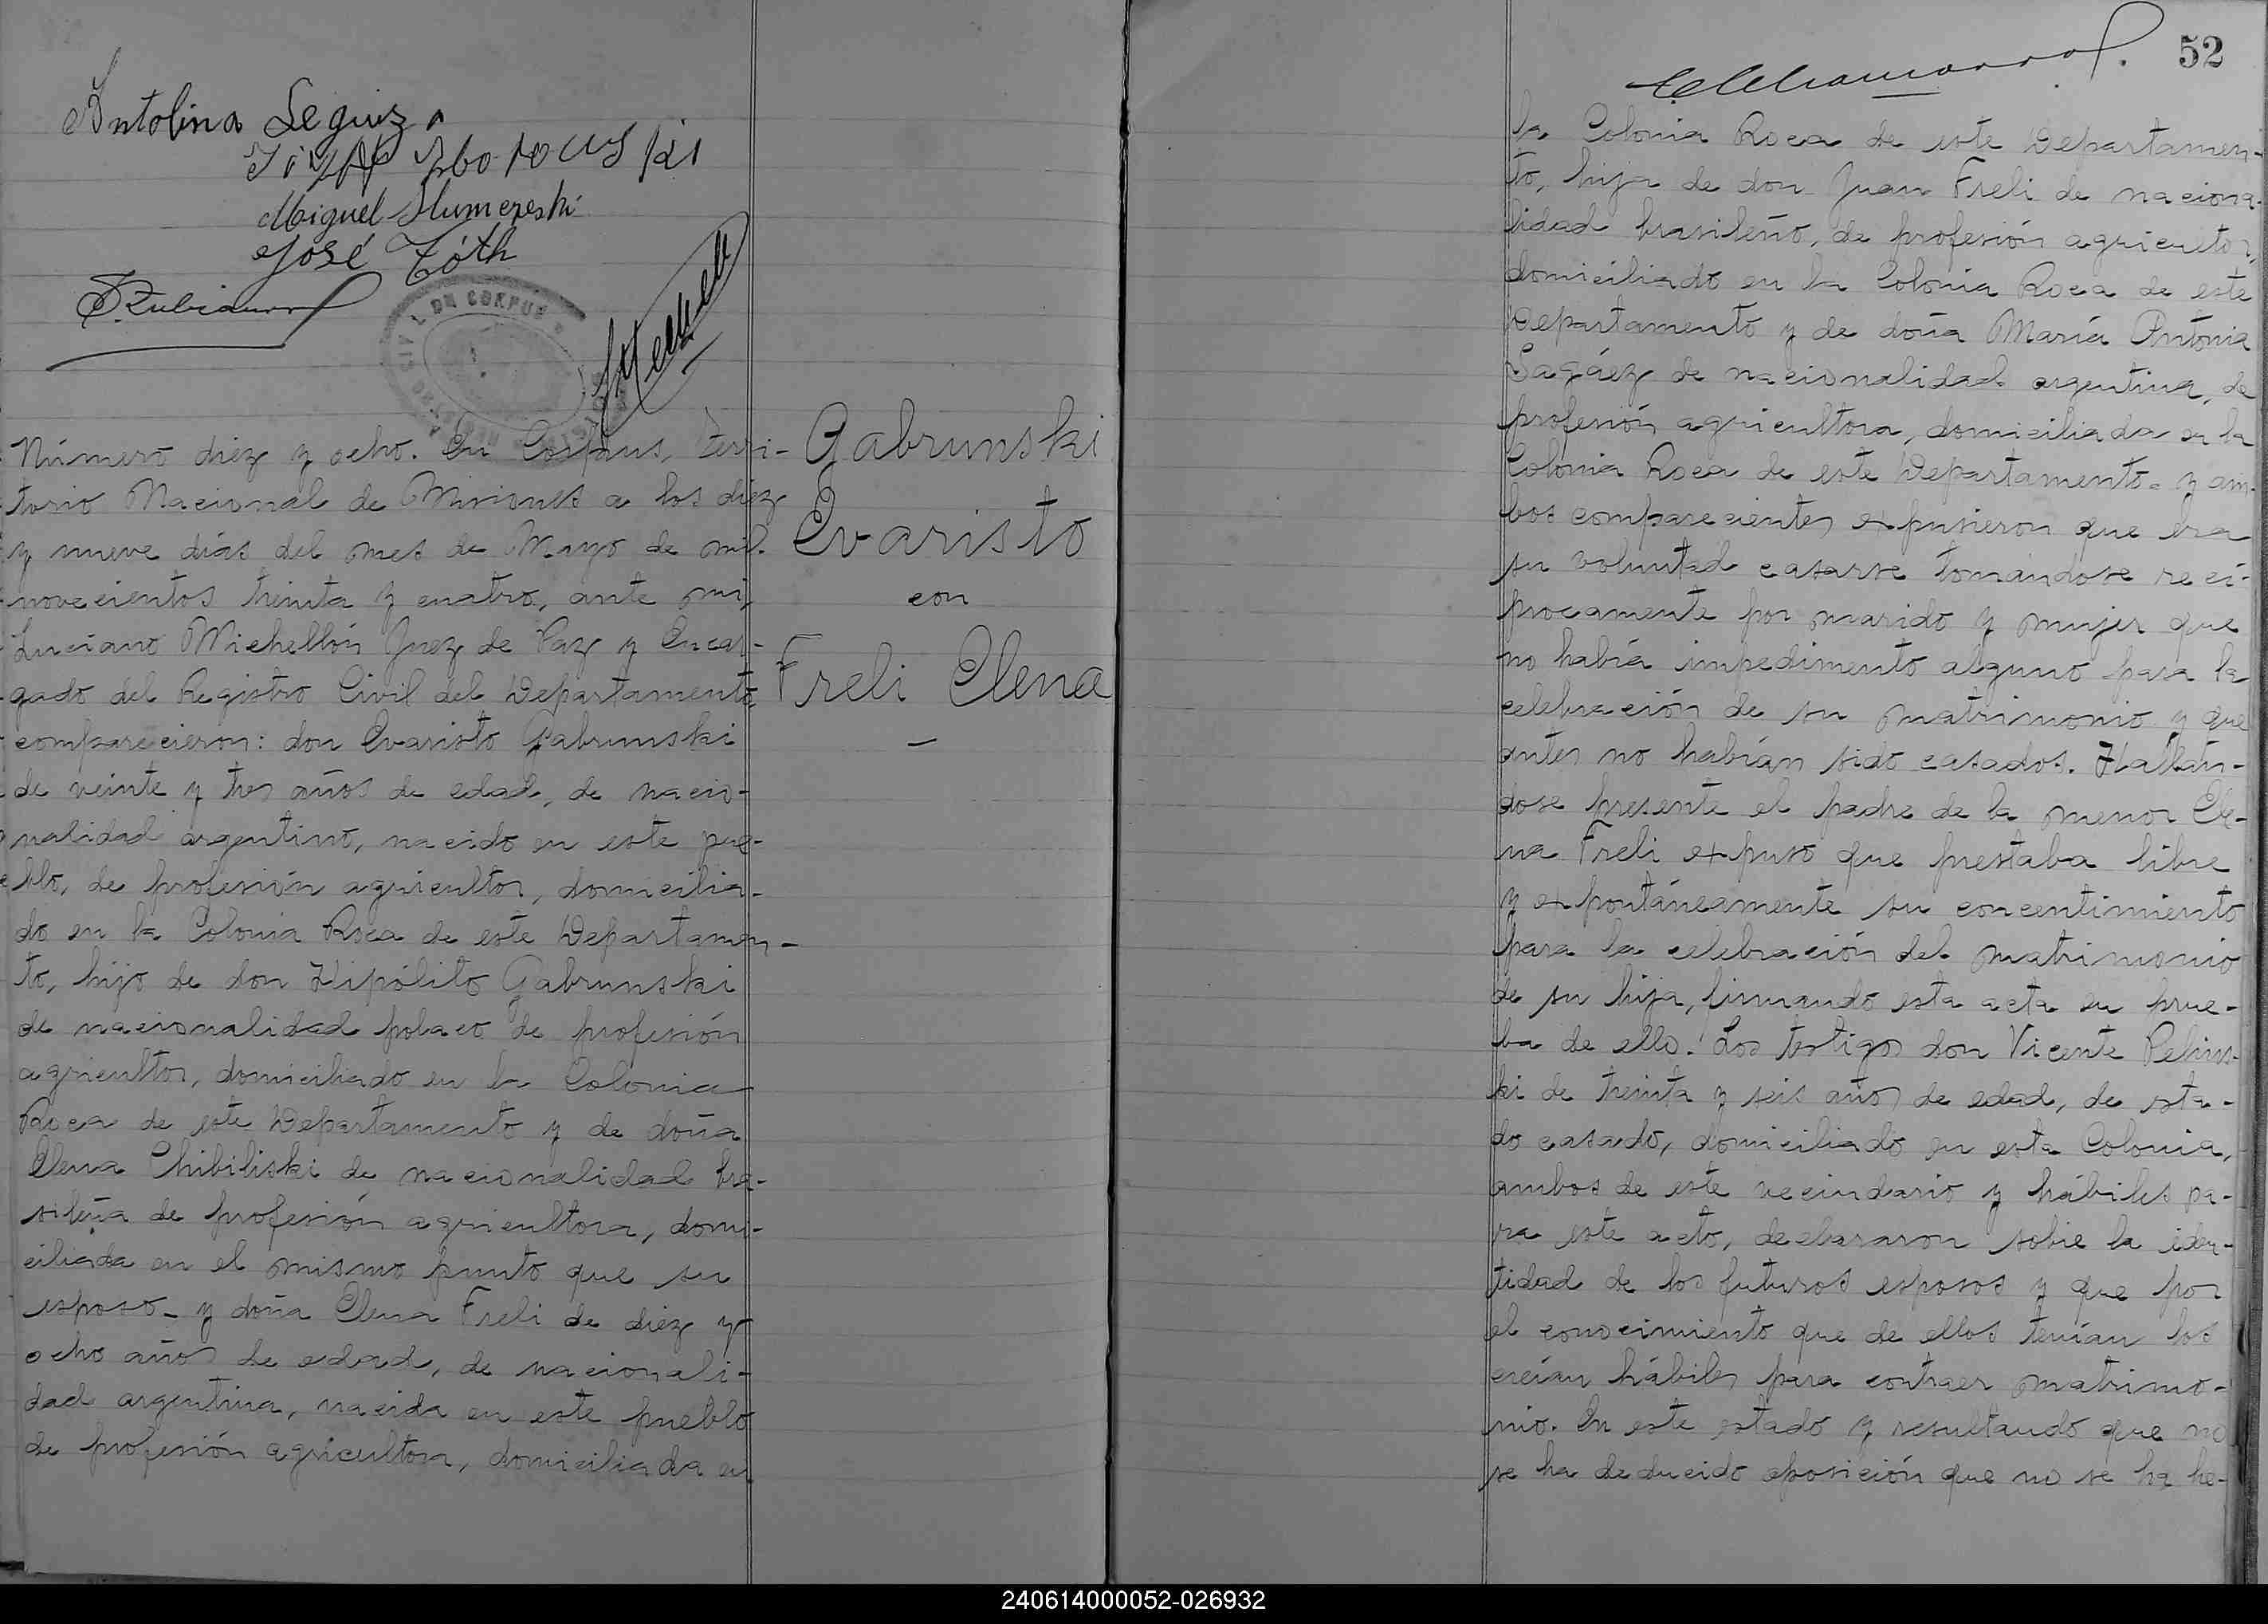 Antolina Leguiza
Miguel Slumezeski
José Tóth
Número diéz y ocho. En Corpus, Terri-
torio Nacional de Misiones a los diéz
y nueve días del mes de Mayo de mil
novecientos treinta y cuatro, ante mí,
Luciano Michellón Juez de Paz y Encar-
gado del Registro Civil del Departamento,
comparecieron: don Evaristo Gabrunski
de veinte y tres años de edad, de nacio-
nalidad argentino, nacido en este pue-
blo, de profesión agricultor, domicilia-
do en la Colonia Roca de este Departamen-
to, hijo de don Hipólito Gabrunski
de nacionalidad polaco de profesión
agricultor, domiciliado en la Colonia
Roca de este Departamento y de doña
Elena Chibiliski de nacionalidad bra-
sileña de profesión agricultora, domi-
ciliada en el mismo punto que su
esposo - y doña Elena Freli de diéz y
ocho años de edad, de nacionali-
dad argentina, nacida en este pueblo
de profesión agricultora, domiciliada en
Gabrunski
Evaristo
con
Freli Elena
52
la Colonia Roca de este Departamen-
to, hija de don Juan Freli de naciona-
lidad brasileño, de profesión agricultor,
domiciliado en la Colonia Roca de este
Departamento y de doña María Antonia
Sagáez de nacionalidad argentina, de
profesión agricultora, domiciliada en la
Colonia Roca de este Departamento - y am-
bos comparecientes expusieron que era
su voluntad casarse tomándose recí-
procamente por marido y mujer que
no había impedimento alguno para la
celebración de su matrimonio y que
antes no habían sido casados. Hallán-
dose presente el padre de la menor Ele-
na Freli expuso que prestaba libre
y expontáneamente su concentimiento
para la celebración del matrimonio
de su hija, firmando esta acta en prue-
ba de ello. Los testigos don Vicente Pelins-
ki de treinta y seis años de edad, de esta-
do casado, domiciliado en esta Colonia,
ambos de este vecindario y hábiles pa-
ra este acto, declararon sobre la iden-
tidad de los futuros esposos y que por
el conocimiento que de ellos tenían los
creían hábiles para contraer matrimo-
nio. En este estado y resultando que no
se ha deducido oposición que no se ha he-
240614000052-026932